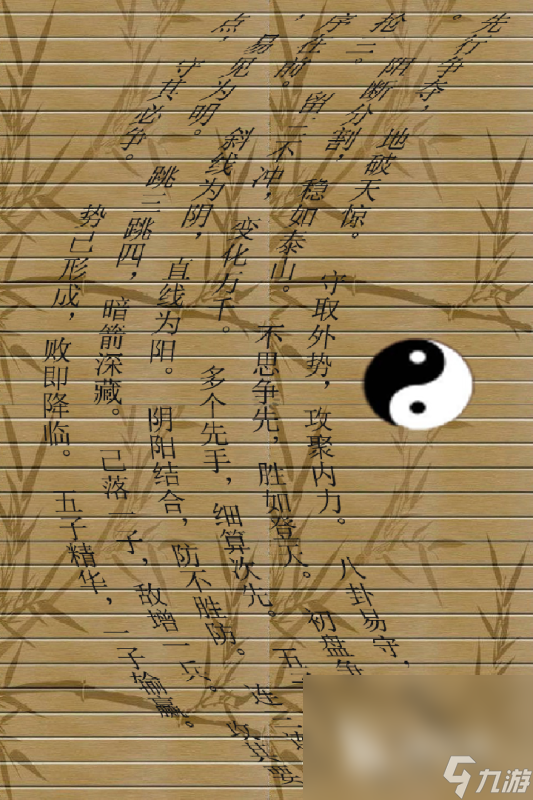 先行争夺，地破天惊。守取外势，攻聚内力。八卦易守，
。阻断分割，稳如泰山。不思争先，胜如登天。初盘争
抢三。留三不冲，变化万千。多个先手，细算次先。五
序在前。斜线为阴，直线为阳。阴阳结合，防不胜防。连三
点，易见为明。跳三跳四，暗箭深藏。己落一子，敌增一兵。攻其要
点，守其必争。势已形成，败即降临。五子精华，一子输赢。
九游